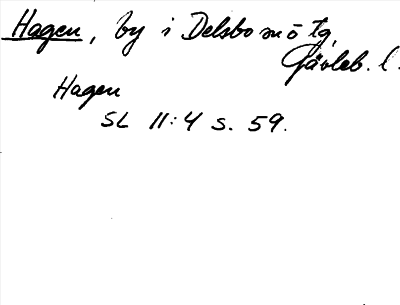 Hagen, by i Delsbo sn o tg,
Gävleb. l.
Hagen
SL 11:4 s. 59.